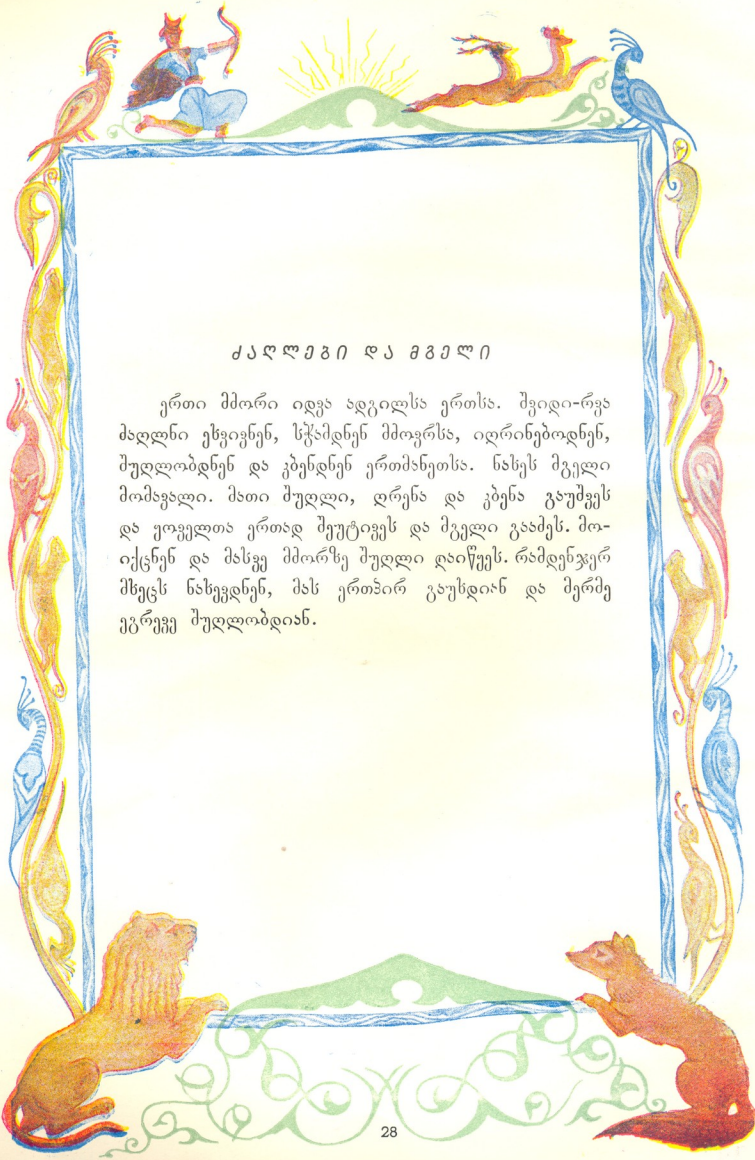 ძაღლები და მგელი
ერთი მძორი იდვა ადგილსა ერთსა. შვიდი-რვა
ძაღლნი ეხვივნენ, სჭამდნენ მძოვრსა, იღრინებოდნენ,
შუღლობდნენ და კბენდნენ ერთმანეთსა. ნახეს მგელი
მომავალი. მათი შუღლი, ღრენა და კბენა გაუშვეს
და ყოველთა ერთად შეუტივეს და მგელი გააძეს. მო-
იქცნენ და მასვე მძორზე შუღლი დაიწყეს. რამდენჯერ
მხეცს ნახევდნენ, მას ერთპირ გაუხდიან და მერმე
ეგრევე შუღლობდიან.
28